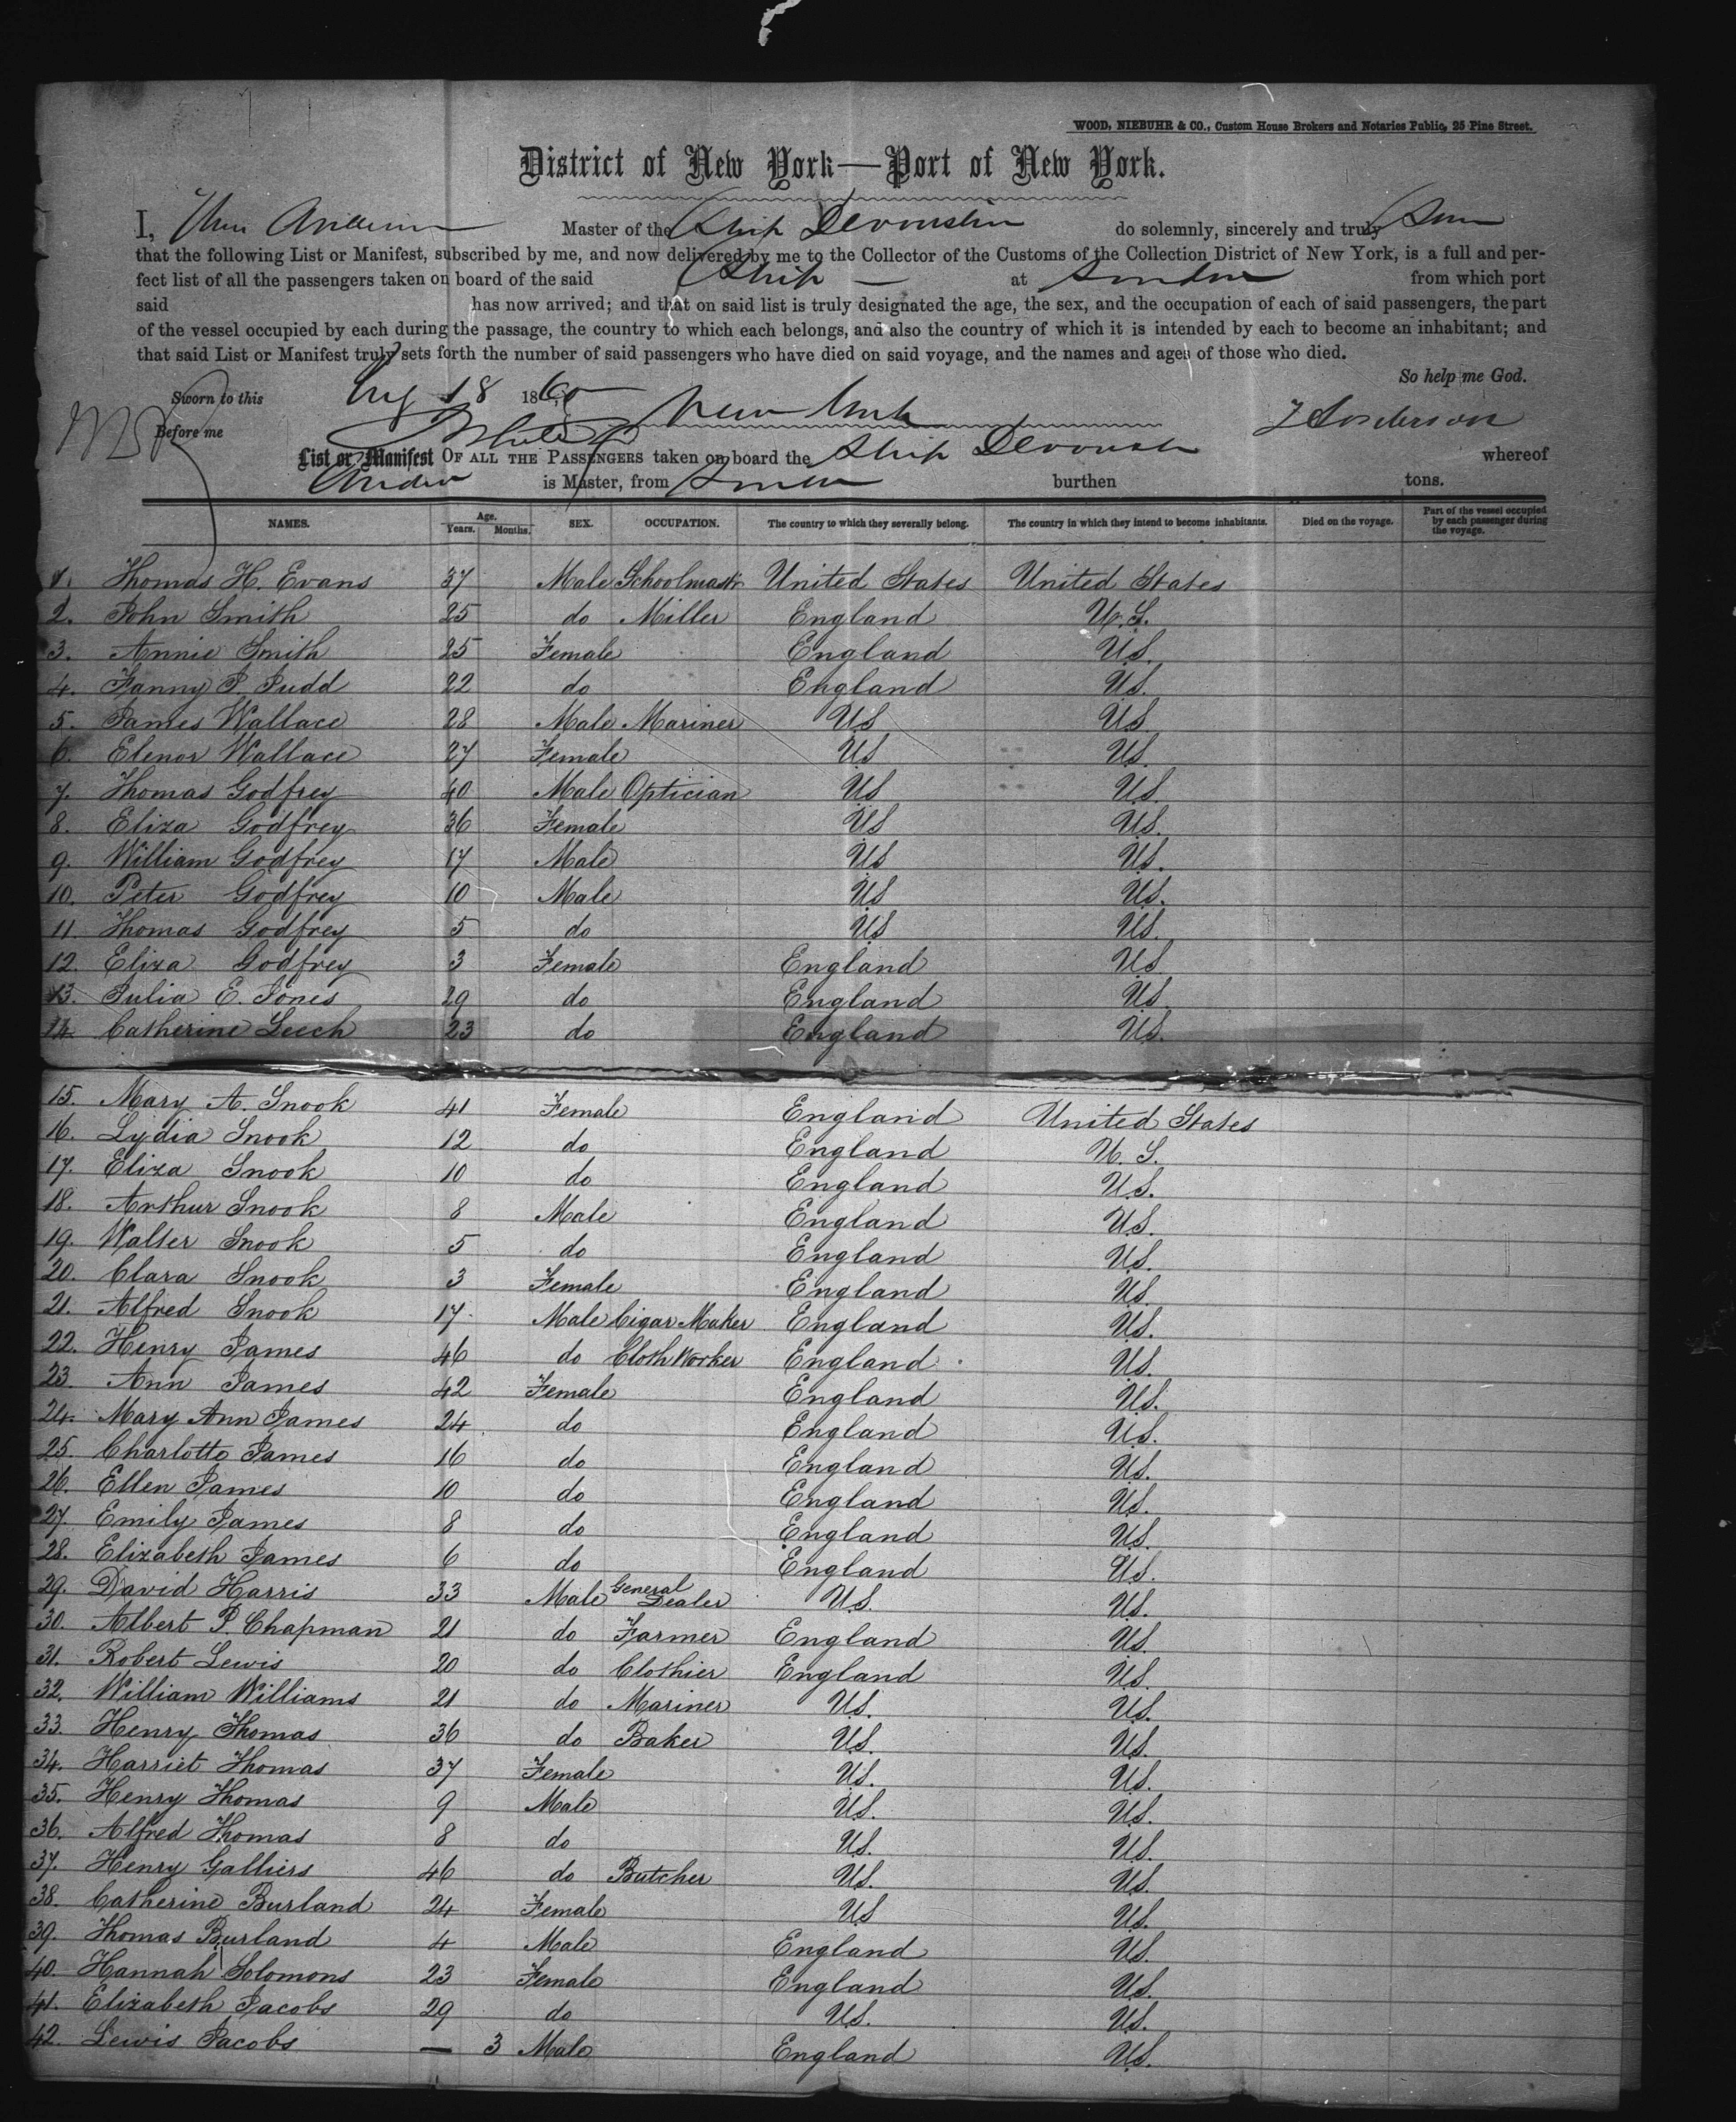 WOOD, NIEBUHR & CO., Custom House Brokers and Notaries Public, 25 Pine Street.
District of New York—Port of New York.
I, Master of the Ship Devonshire do solemnly, sincerely and truly
that the following List or Manifest, subscribed by me, and now delivered by me to the Collector of the Customs of the Collection District of New York, is a full and per-
fect list of all the passengers taken on board of the said Ship — at London from which port
said has now arrived; and that on said list is truly designated the age, the sex, and the occupation of each of said passengers, the part
of the vessel occupied by each during the passage, the country to which each belongs, and also the country of which it is intended by each to become an inhabitant; and
that said List or Manifest truly sets forth the number of said passengers who have died on said voyage, and the names and ages of those who died.
So help me God.
Sworn to this Aug 18 1860
Before me New York
List or Manifest OF ALL THE PASSENGERS taken on board the Ship Devonshire whereof
is Master, from London burthen tons.
NAMES. Age. Years. Months. SEX. OCCUPATION. The country to which they severally belong. The country in which they intend to become inhabitants. Died on the voyage. Part of the vessel occupied by each passenger during the voyage.
1. Thomas H. Evans 37 Male Schoolmastr United States United States
2. John Smith 25 do Miller England U.S.
3. Annie Smith 25 Female England U.S.
4. Fanny P. Judd 22 do England U.S.
5. James Wallace 28 Male Mariner U.S U.S.
6. Elenor Wallace 27 Female U.S U.S.
7. Thomas Godfrey 40 Male Optician U.S U.S.
8. Eliza Godfrey 36 Female U.S U.S.
9. William Godfrey 17 Male U.S U.S.
10. Peter Godfrey 10 Male U.S U.S.
11. Thomas Godfrey 5 do U.S U.S.
12. Eliza Godfrey 3 Female England U.S
13. Julia E. Jones 29 do England U.S.
14. Catherine Leech 23 do England U.S.
15. Mary A. Snook 41 Female England United States
16. Lydia Snook 12 do England U. S.
17. Eliza Snook 10 do England U.S.
18. Arthur Snook 8 Male England U.S.
19. Walter Snook 5 do England U.S.
20. Clara Snook 3 Female England U.S.
21. Alfred Snook 17 Male Cigar Maker England U.S.
22. Henry James 46 do Cloth Worker England U.S.
23. Ann James 42 Female England U.S.
24. Mary Ann James 24 do England U.S.
25. Charlotte James 16 do England U.S.
26. Ellen James 10 do England U.S.
27. Emily James 8 do England U.S.
28. Elizabeth James 6 do England U.S.
29. David Harris 33 Male General Dealer U.S. U.S.
30. Albert P. Chapman 21 do Farmer England U.S.
31. Robert Lewis 20 do Clothier England U.S.
32. William Williams 21 do Mariner U.S. U.S.
33. Henry Thomas 36 do Baker U.S. U.S.
34. Harriet Thomas 37 Female U.S. U.S.
35. Henry Thomas 9 Male U.S. U.S.
36. Alfred Thomas 8 do U.S. U.S.
37. Henry Galliers 46 do Butcher U.S. U.S.
38. Catherine Burland 24 Female U.S U.S.
39. Thomas Burland 4 Male England U.S.
40. Hannah Solomons 23 Female England U.S.
41. Elizabeth Jacobs 29 do U.S. U.S.
42. Lewis Jacobs — 3 Male England U.S.